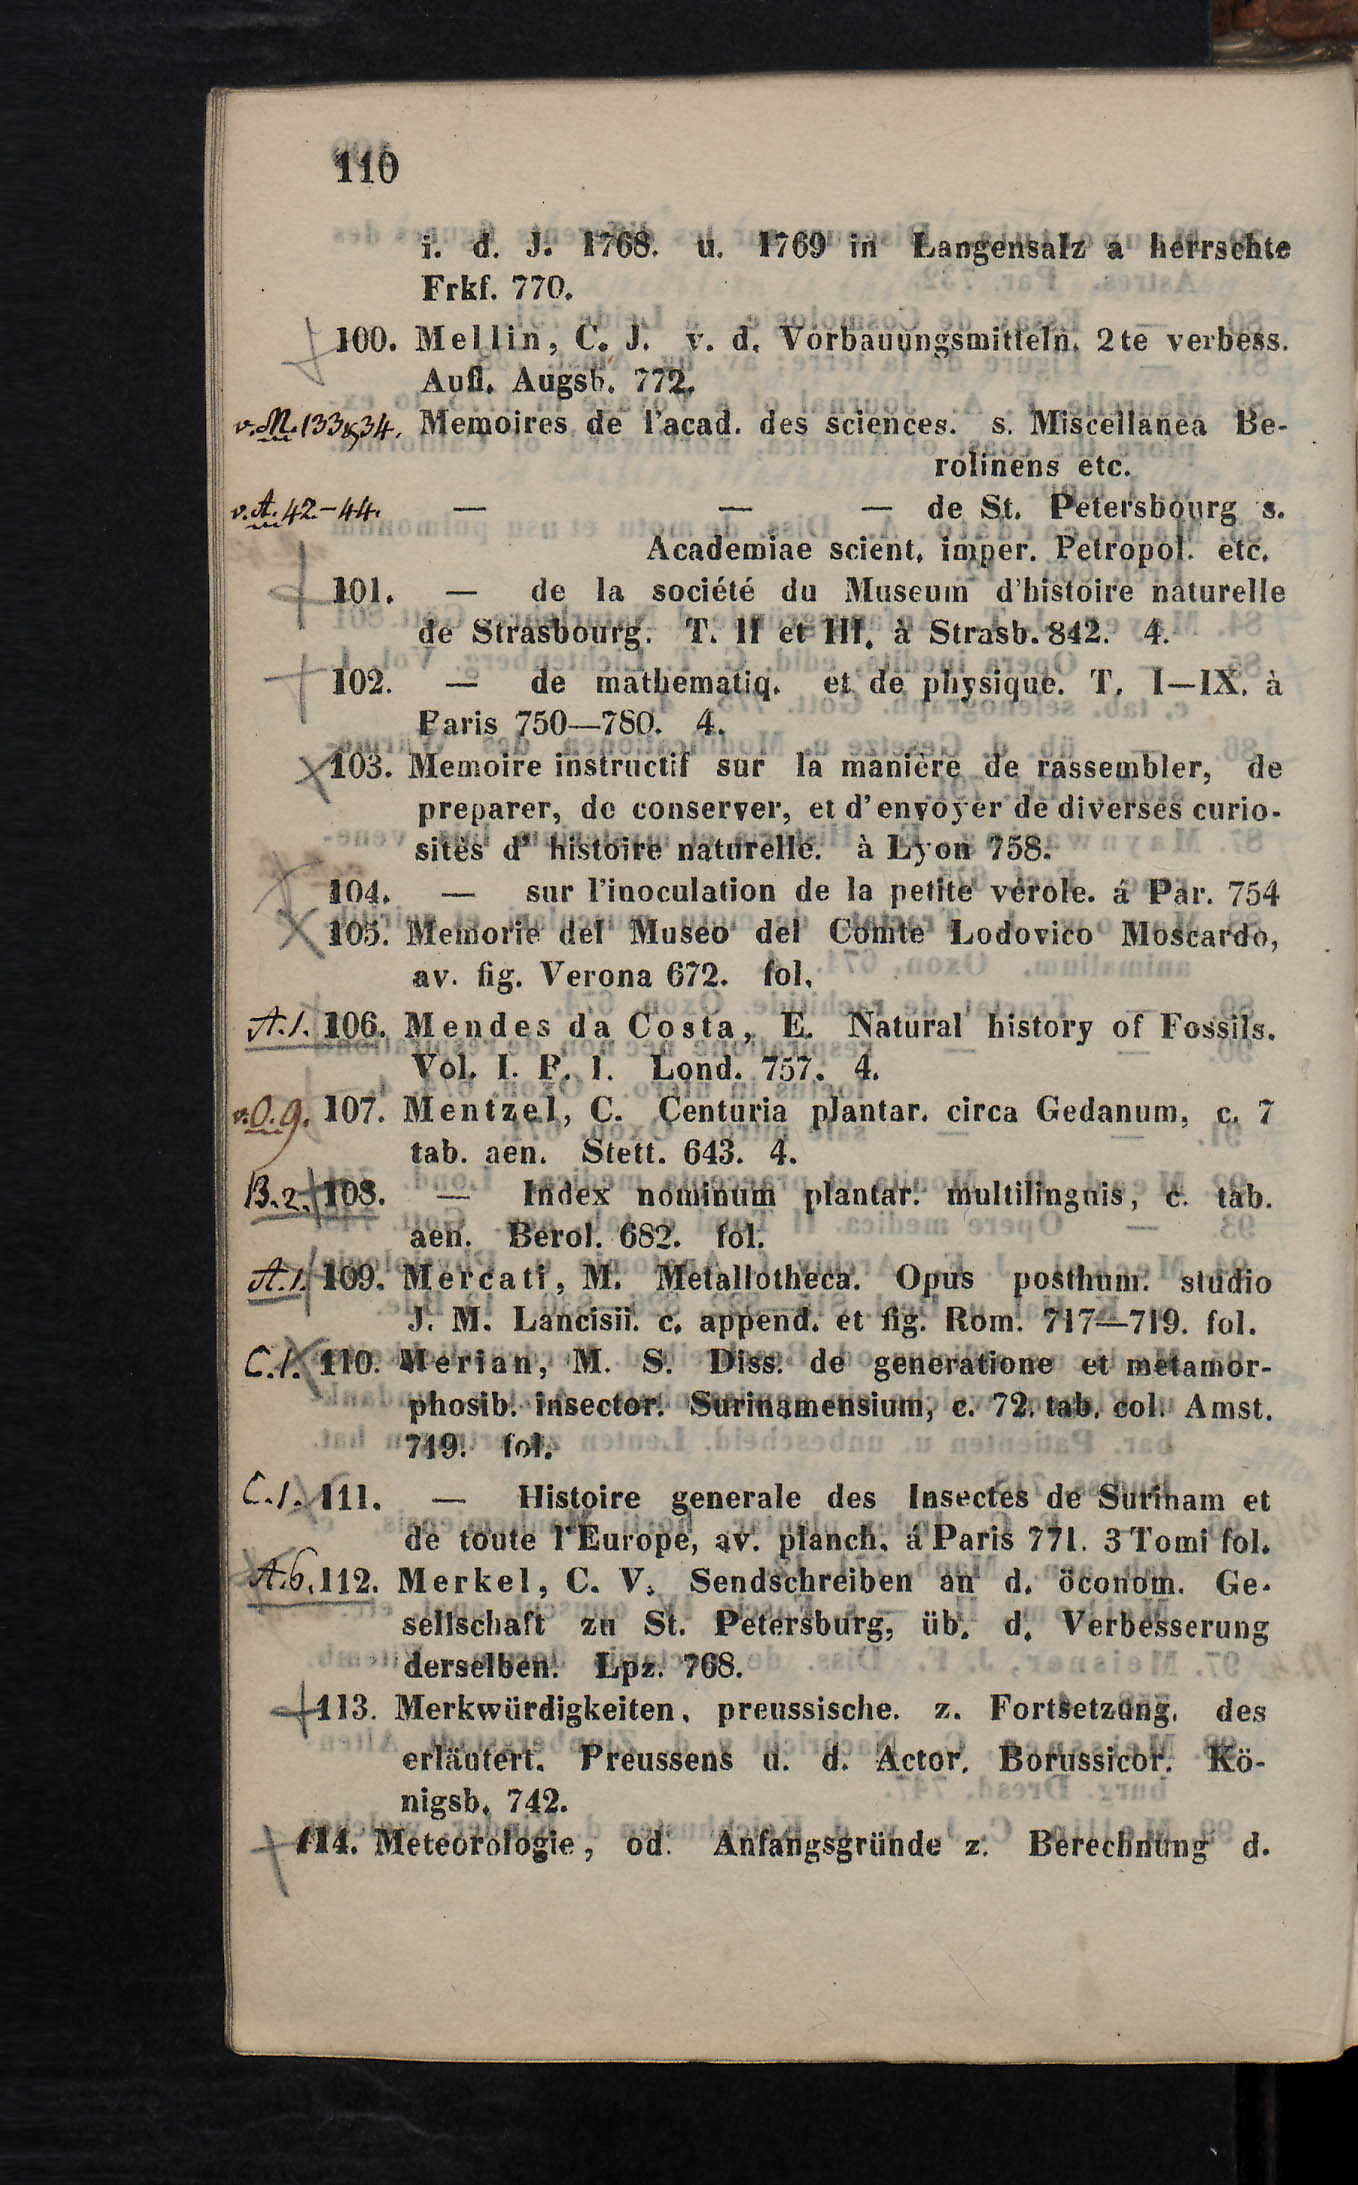 110
i. d. J. 1768. u. 1769 in Langensalz a herrschte
Frkf. 770.
100. Mellin, C. J. v. d. Vorbauungsmitteln. 2te verbess.
Aufl. Augsb. 772.
v. M. 133 & 34. Memoires de l'acad. des sciences. s. Miscellanea Be-
rolinens etc.
v. A. 42-44. — — — de St. Petersbourg s.
Academiae scient. imper. Petropol. etc.
101. — de la société du Museum d'histoire naturelle
de Strasbourg. T. II et III. à Strasb. 842. 4.
102. — de mathematiq. et de physique. T. I—IX. à
Paris 750—780. 4.
103. Memoire instructif sur la manière de rassembler, de
preparer, de conserver, et d'envoyer de diverses curio-
sités d' histoire naturelle. à Lyon 758.
104. — sur l'inoculation de la petite vérole. á Par. 754
105. Memorie del Museo del Comte Lodovico Moscardo,
av. fig. Verona 672. fol.
A.1. 106. Mendes da Costa, E. Natural history of Fossils.
Vol. I. P. 1. Lond. 757. 4.
v. O. 9. 107. Mentzel, C. Centuria plantar. circa Gedanum, c. 7
tab. aen. Stett. 643. 4.
B.2. 108. — Index nominum plantar. multilinguis, c. tab.
aen. Berol. 682. fol.
A.1. 109. Mercati, M. Metallotheca. Opus posthum. studio
J. M. Lancisii. c. append. et fig. Rom. 717—719. fol.
C.1. 110. Merian, M. S. Diss. de generatione et metamor-
phosib. insector. Surinamensium, c. 72. tab. col. Amst.
719. fol.
C.1. 111. — Histoire generale des Insectes de Surinam et
de toute l'Europe, av. planch. á Paris 771. 3 Tomi fol.
A.6. 112. Merkel, C. V. Sendschreiben an d. öconom. Ge-
sellschaft zu St. Petersburg, üb. d. Verbesserung
derselben. Lpz. 768.
113. Merkwürdigkeiten, preussische. z. Fortsetzung. des
erläutert. Preussens u. d. Actor. Borussicor. Kö-
nigsb. 742.
114. Meteorologie, od. Anfangsgründe z. Berechnung d.